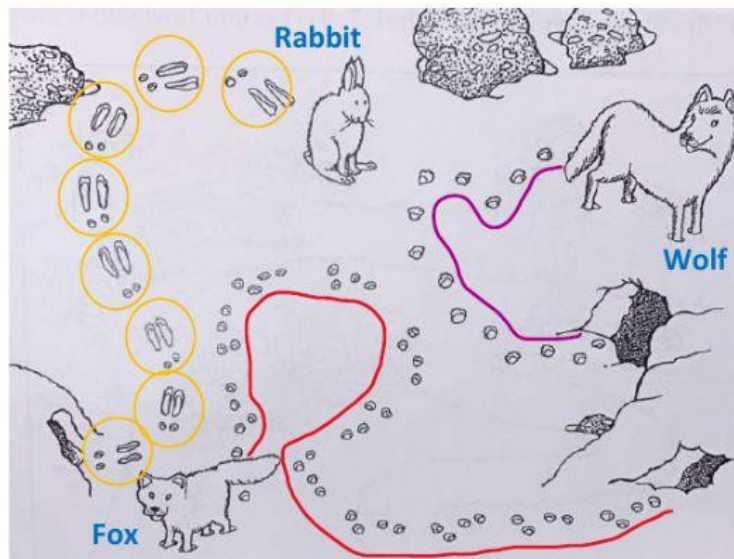 Rabbit
Wolf
Fox